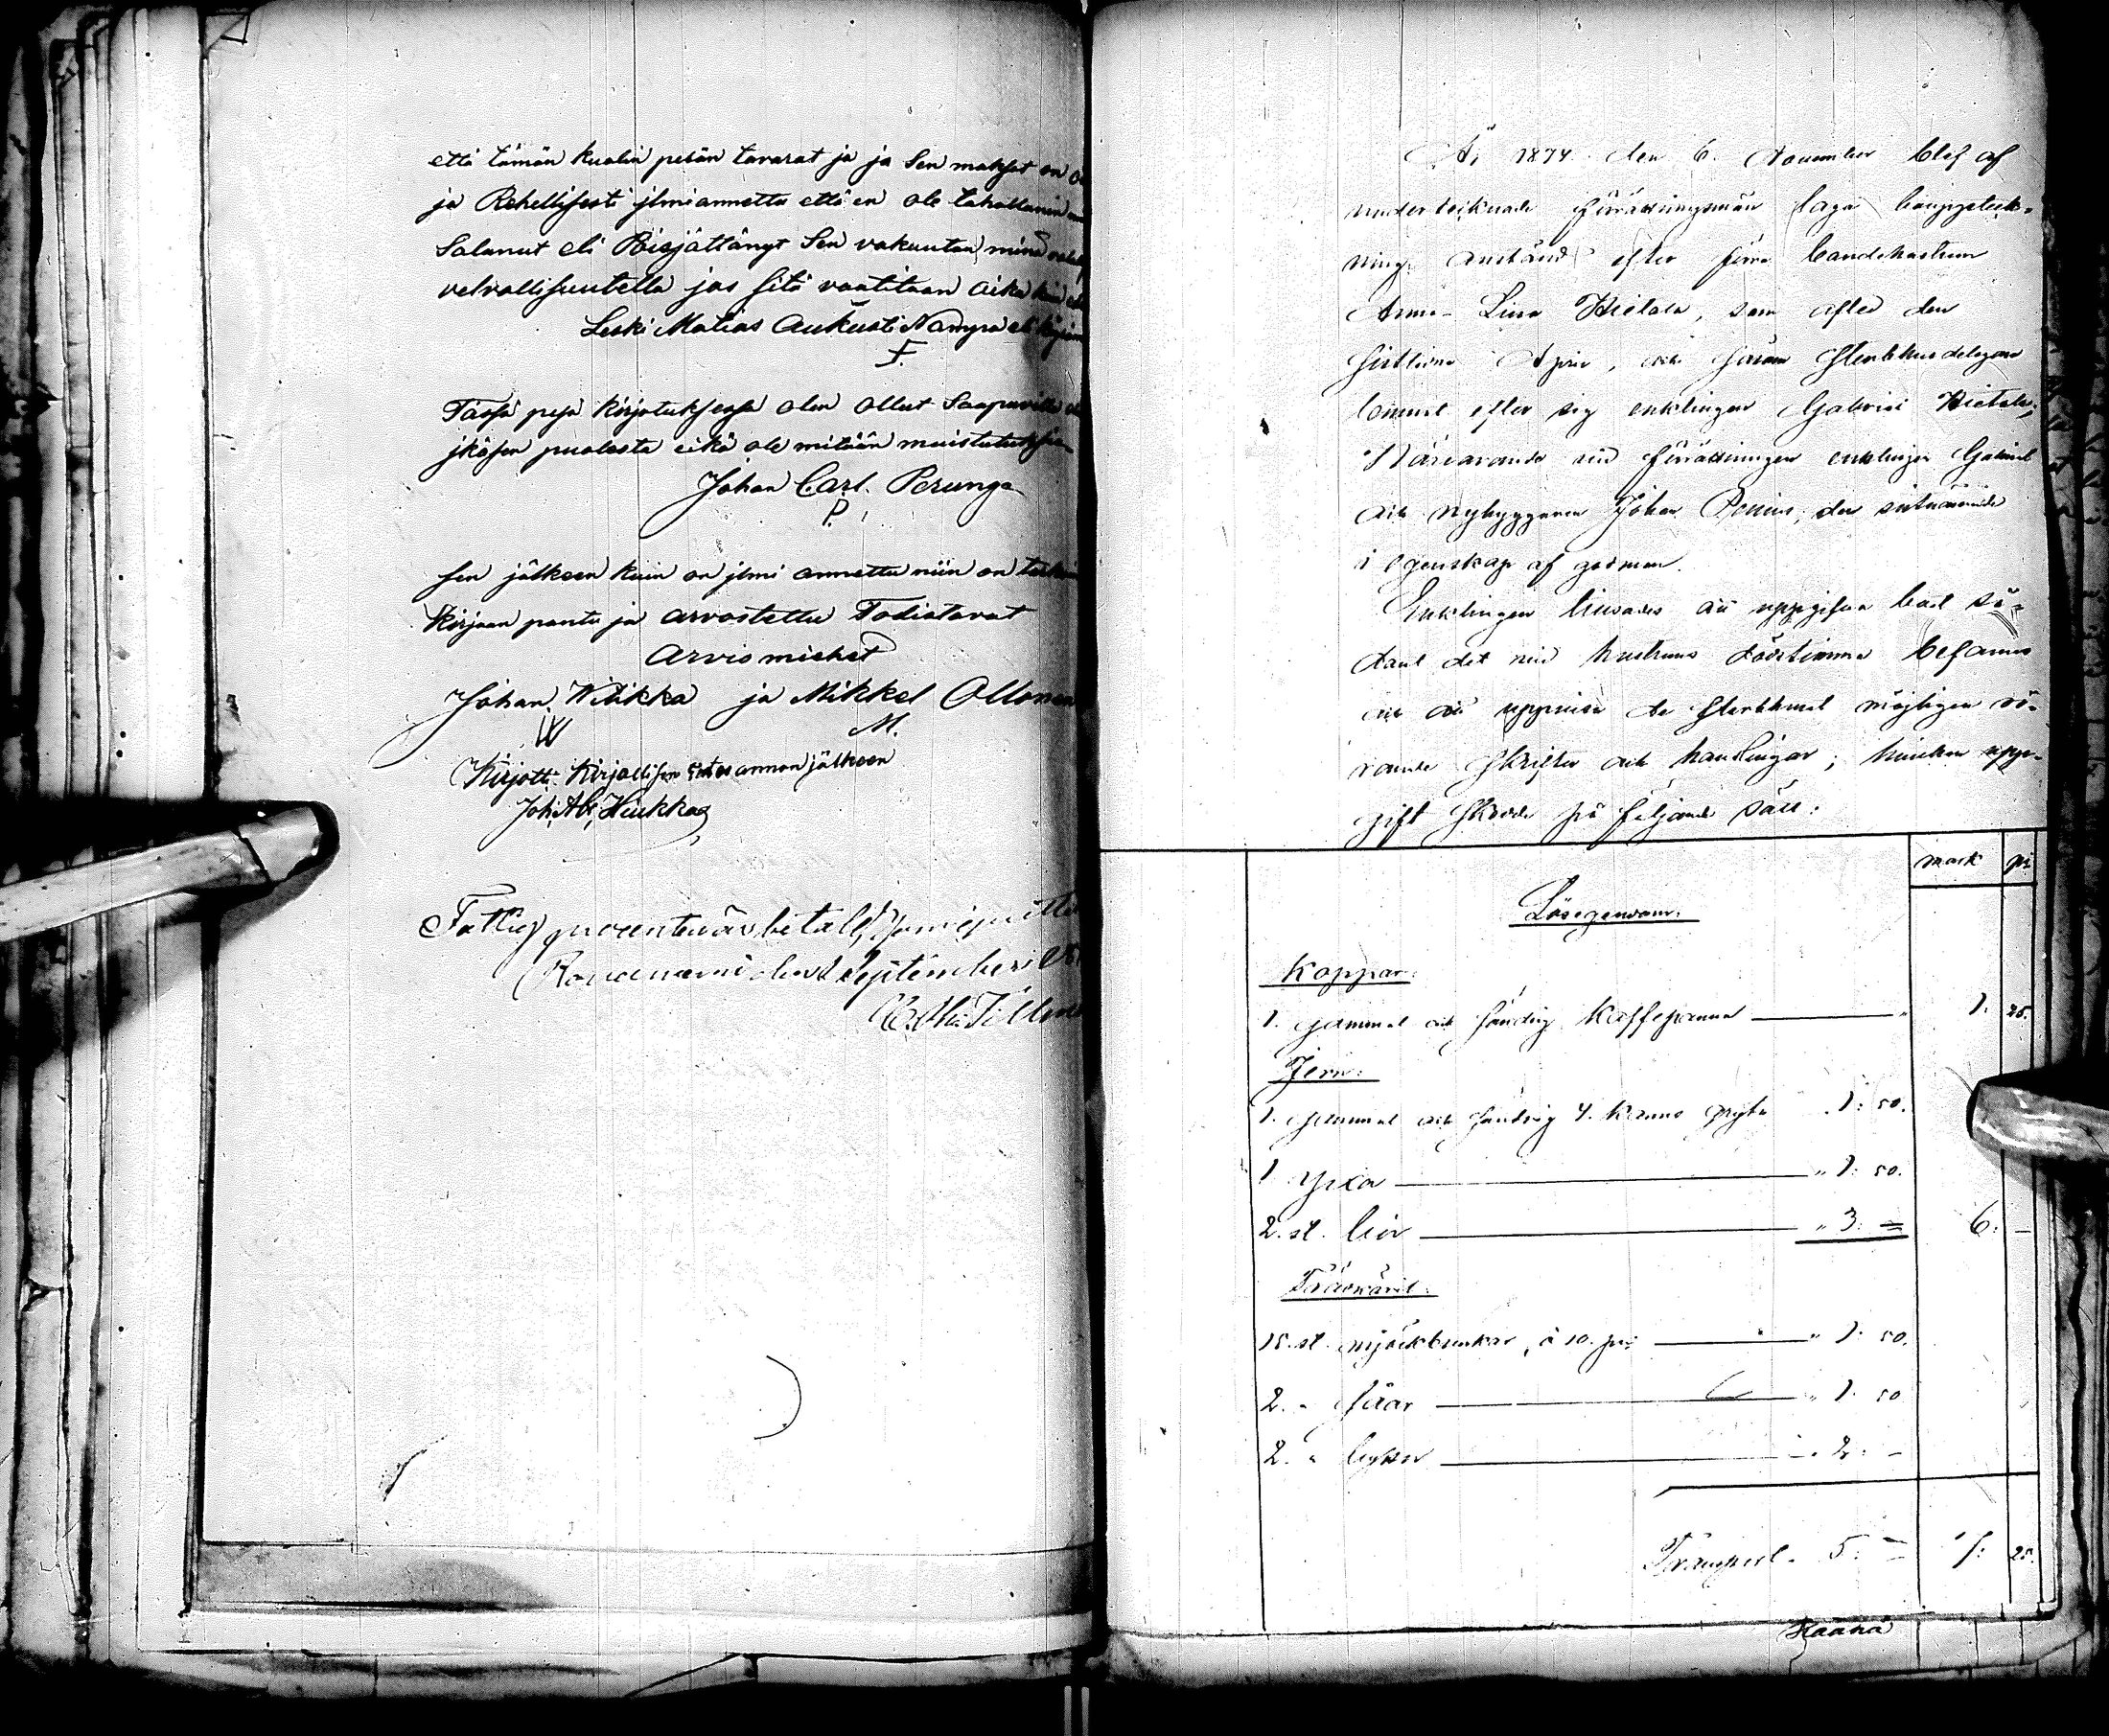 että tämän kuolin pesän tavarat ja ja Sen maksot on
ja Rehellisesti jlmiannettu että en ole tahallanin
Salannut eli Poisjättänyt Sen vakuutan minä
velvollisuutella jos sitä vaatitaan Aika
Leski Matias Aukusti Nampa
F.
Tässä pesä kirjotuksessa olen Ollut Saapuvilla
jkäsen puolesta eikä ole mitään muistutuksia
Johan Carl Perunga
P.
Sen jälkeen kuin on jlmi annettu niin on
Kirjaan pantu ja arvostettu Todistavat
Arvio miehet
Johan Wilikka ja Mikkel Ollonen
W M.
Kirjotti Kirjallisen annon jälkeen
Joh: Ab: Heikka
Fattig procenten är betald,
Rovaniemi den September
År 1874 den 6. November blef af
undertecknade förrättningsmän laga bouppteck-
ning anstäld efter förra bondehustrun
Anna Lisa Hietala, som afled den
sistlidne April, och såsom sterbhusdelegare
lemnat efter sig enklingen Gabriel Hietala;
Närvarande vid förrättningen enklingen Gabriel
och nybyggaren Johan den sistnämnde
i egenskap af godman.
Enklingen att uppgifva boet så-
dant det vid hustruns dödstimma befanns
och att uppvisa de Sterbhuset möjligen rö-
rande skrifter och handlingar; hvilken upp-
gift skedde på följande sätt:
mark pi
Lösegendom:
Koppar:
1. gammal och söndrig kaffepanna 1. 25.
Jern:
1. gammal och söndrig 4. kanns gryta 1: 50.
1 yxa " 1: 50.
2. st. liar " 3: = 6: –
Trävaror:
15. st. mjölkbunkar, à 10. pi " 1: 50.
2. " såar " 1: 50
2. " byttor " 2: –
Transport 5: – 7: 25.
Käännä